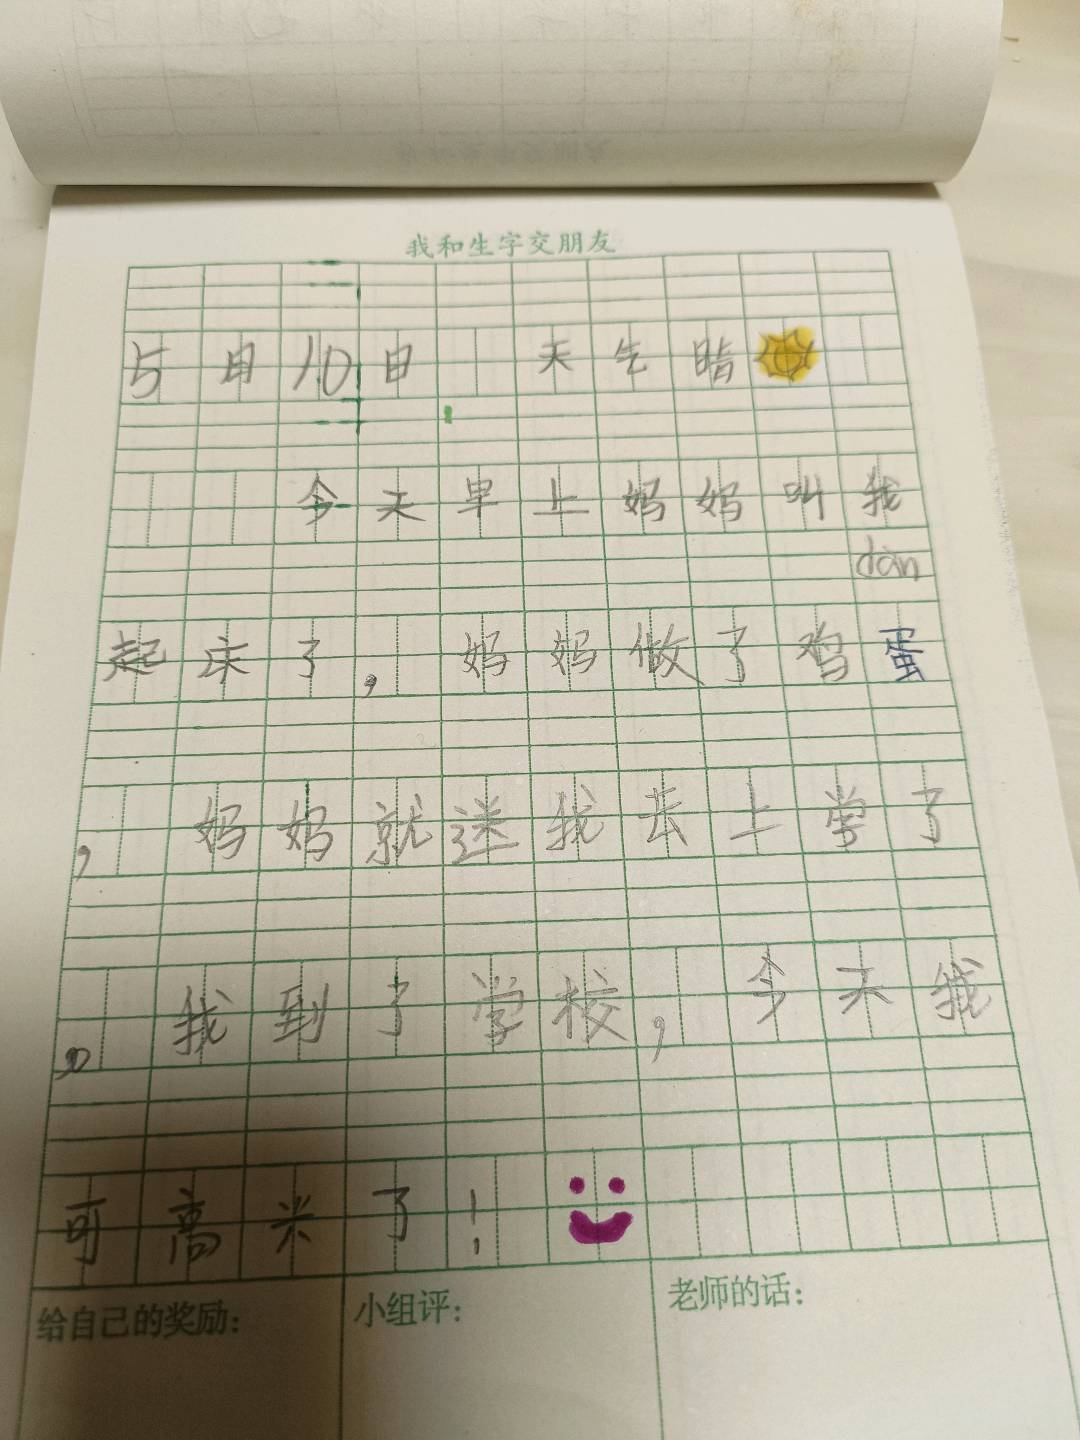 我和生字交朋友
5月10日 天气晴
今天早上妈妈叫我
dàn
起床了,妈妈做了鸡蛋
,妈妈就送我去上学了
。我到了学校,今天我
可高米了!
给自己的奖励: 小组评: 老师的话: